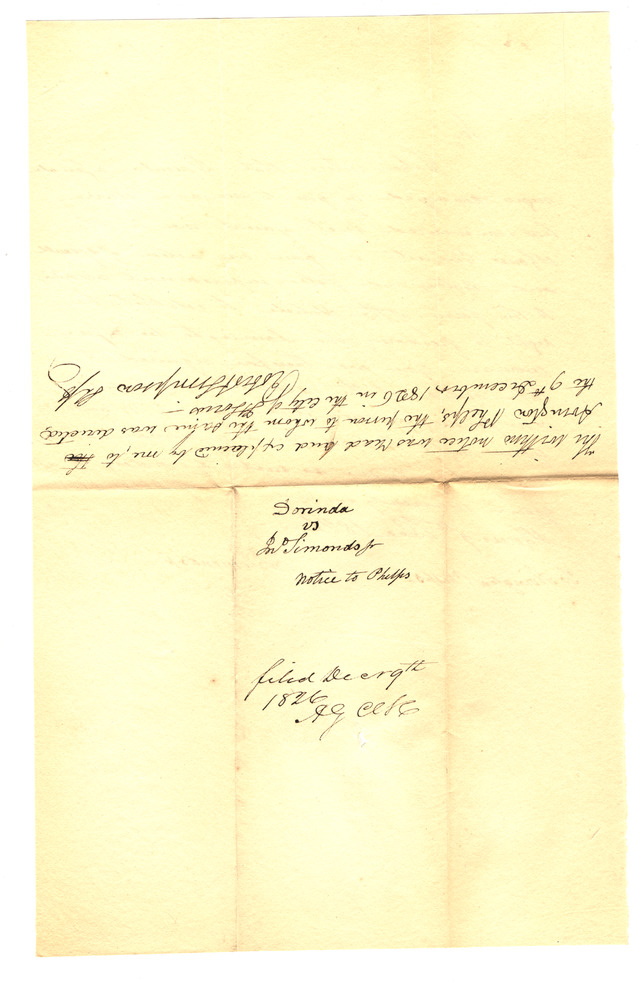 The within notice was read and explained by me, to the
Arington Phelps, the person to whom the same was directed
the 9th December 1826 in the City of St Louis —
Robert Simpson Shff
Dorinda
vs
Jno Simonds jr
Notice to Phelps
filed Decr 9th
1826
AG Clk